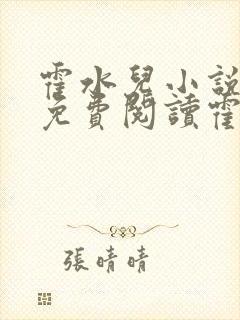 霍水兒小說
免費閱讀霍
張晴晴